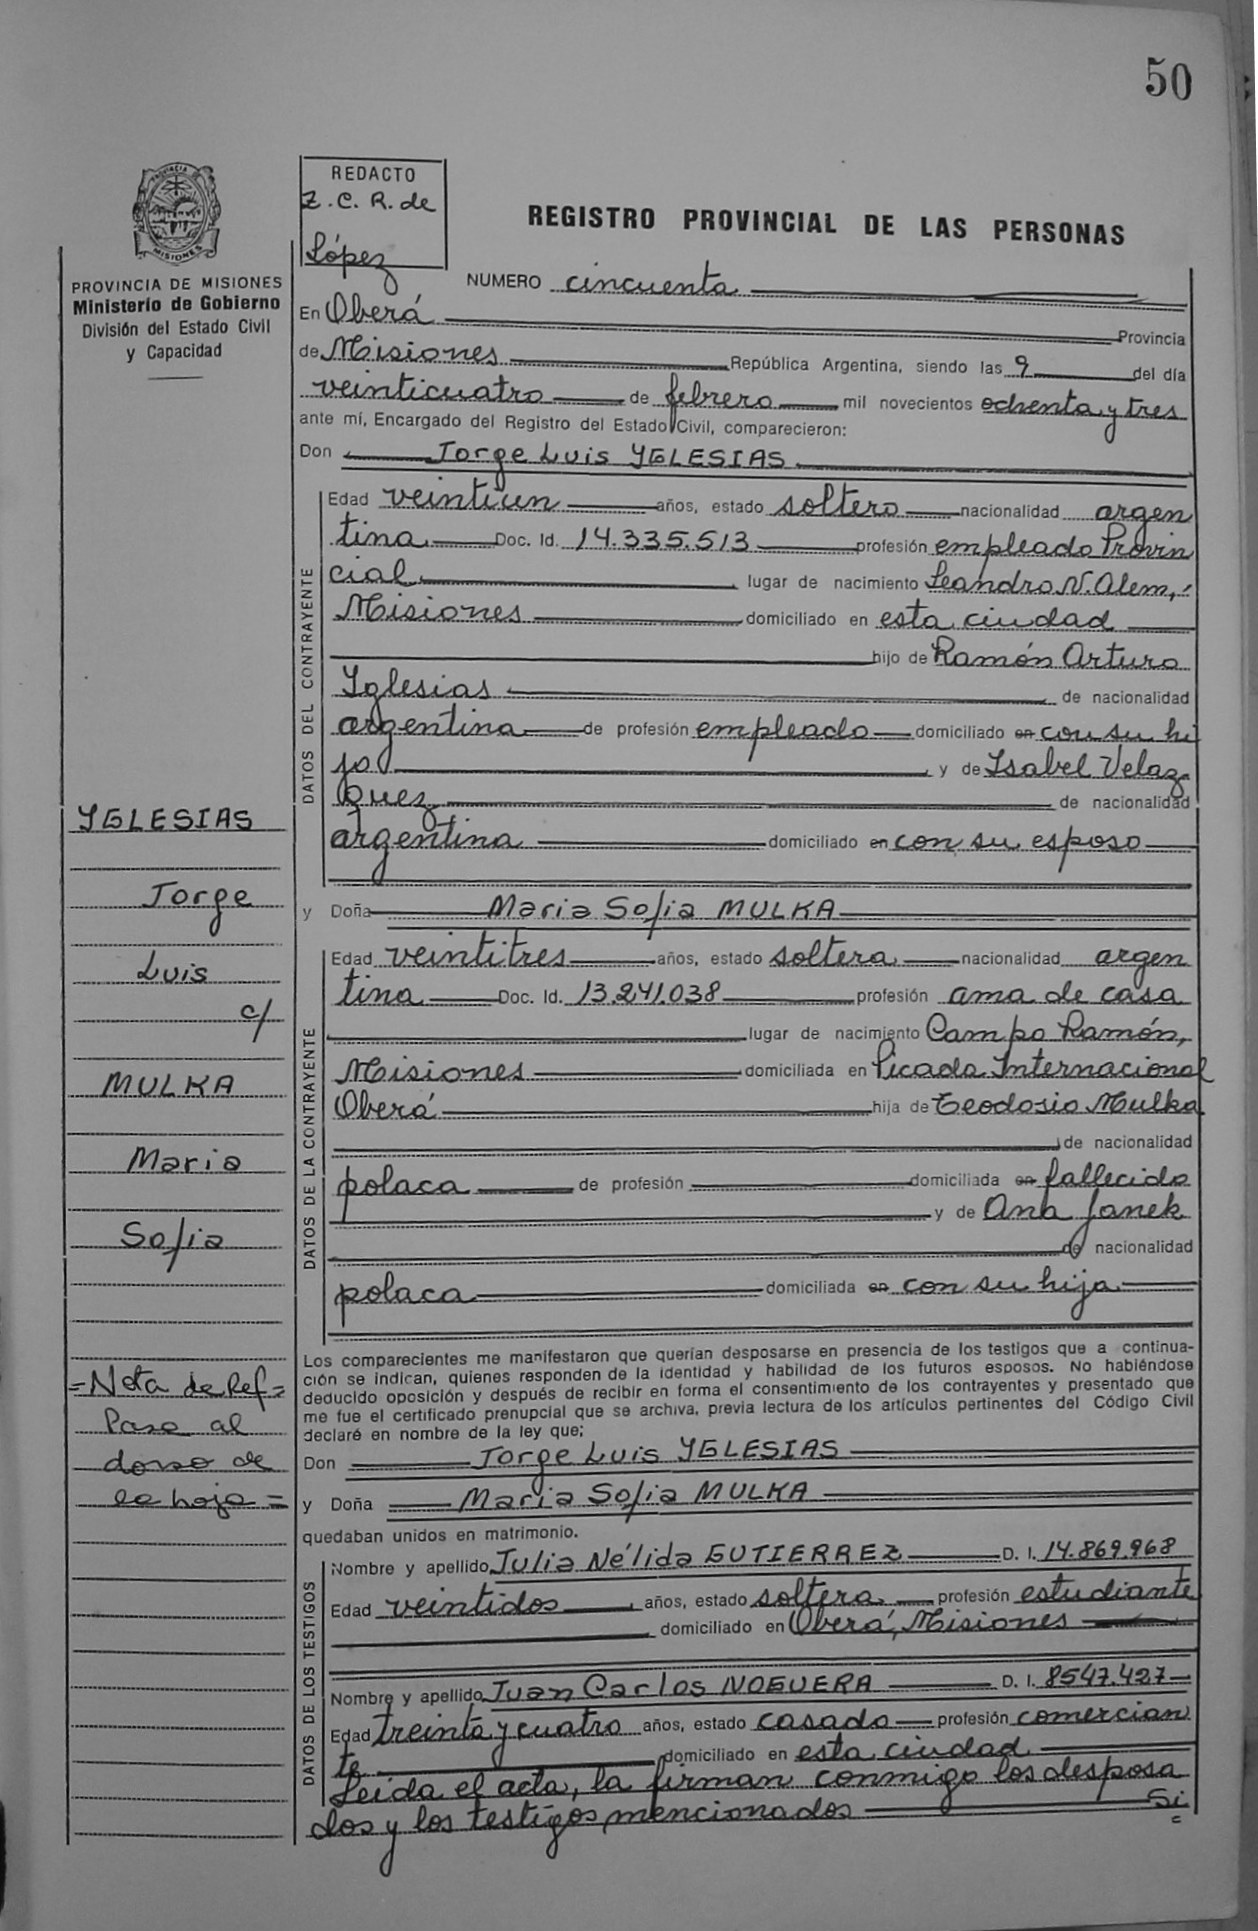 50
REDACTO
Z. C. R. de
López
REGISTRO PROVINCIAL DE LAS PERSONAS
PROVINCIA DE MISIONES
Ministerio de Gobierno
División del Estado Civil
y Capacidad
NUMERO cincuenta
En Oberá Provincia
de Misiones República Argentina, siendo las 9 del día
veinticuatro de febrero mil novecientos ochenta y tres
ante mí, Encargado del Registro del Estado Civil, comparecieron:
Don Jorge Luis YGLESIAS
DATOS DEL CONTRAYENTE
Edad veintiun años, estado soltero nacionalidad argen
tina Doc. Id. 14.335.513 profesión empleado Provin
cial lugar de nacimiento Leandro N. Alem,
Misiones domiciliado en esta ciudad
hijo de Ramón Arturo
Yglesias de nacionalidad
argentina de profesión empleado domiciliado en con su hi
jo y de Isabel Velaz
quez de nacionalidad
argentina domiciliado en con su esposo
y Doña Maria Sofia MULKA
DATOS DE LA CONTRAYENTE
Edad veintitres años, estado soltera nacionalidad argen
tina Doc. Id. 13.241.038 profesión ama de casa
lugar de nacimiento Campo Ramón,
Misiones domiciliada en Picada Internacional
Oberá hija de Teodosio Mulka
de nacionalidad
polaca de profesión domiciliada en fallecido
y de Ana Janek
de nacionalidad
polaca domiciliada en con su hija
YGLESIAS
Jorge
Luis
c/
MULKA
Maria
Sofia
=Nota de Ref=
Pasa al
dorso de
la hoja=
Los comparecientes me manifestaron que querían desposarse en presencia de los testigos que a continua-
ción se indican, quienes responden de la identidad y habilidad de los futuros esposos. No habiéndose
deducido oposición y después de recibir en forma el consentimiento de los contrayentes y presentado que
me fue el certificado prenupcial que se archiva, previa lectura de los artículos pertinentes del Código Civil
declaré en nombre de la ley que:
Don Jorge Luis YGLESIAS
y Doña Maria Sofia MULKA
quedaban unidos en matrimonio.
DATOS DE LOS TESTIGOS
Nombre y apellido Julia Nélida GUTIERREZ D. I. 14.869.968
Edad veintidos años, estado soltera profesión estudiante
domiciliado en Oberá, Misiones
Nombre y apellido Juan Carlos NOGUERA D. I. 8547.427
Edad treinta y cuatro años, estado casado profesión comercian
te domiciliado en esta ciudad
Leida el acta, la firman conmigo los desposa
dos y los testigos mencionados Si